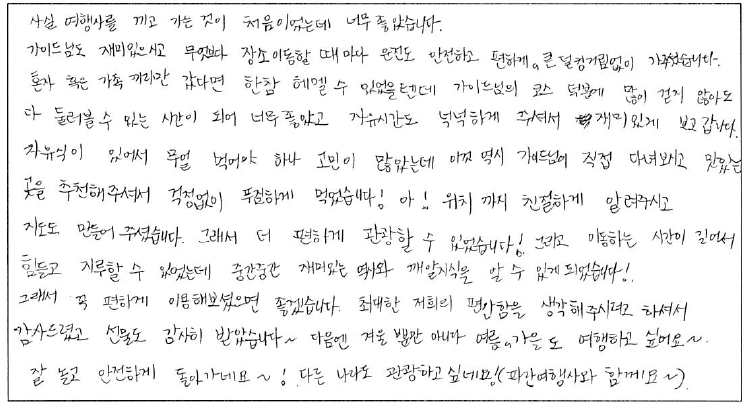 사실 여행사를 끼고 가는 것이 처음이었는데 너무 좋았습니다.
가이드님도 재미있으시고 무엇보다 장소이동할 때마다 운전도 안전하고 편하게 큰 덜컹거림없이 가주셨습니다.
혼자 혹은 가족끼리만 갔다면 한참 헤멜 수 있었을텐데 가이드님의 코스 덕분에 많이 걷지 않아도
다 둘러볼 수 있는 시간이 되어 너무 좋았고 자유시간도 넉넉하게 주셔서 재미있게 보고 갑니다.
자유식이 있어서 무얼 먹어야 하나 고민이 많았는데 이것 역시 가이드님이 직접 다녀보시고 맛있는
곳을 추천해주셔서 걱정없이 푸짐하게 먹었습니다! 아! 위치까지 친절하게 알려주시고
지도도 만들어 주셨습니다. 그래서 더 편하게 관광할 수 있었습니다! 그리고 이동하는 시간이 길어서
힘들고 지루할 수 있었는데 중간중간 재미있는 역사와 깨알지식을 알 수 있게 되었습니다!
그래서 꼭 편하게 이용해보셨으면 좋겠습니다. 최대한 저희의 편안함을 생각해주시려고 하셔서
감사드렸고 선물도 감사히 받았습니다~ 다음엔 겨울 뿐만 아니라 여름, 가을도 여행하고 싶어요~
잘 놀고 안전하게 돌아가네요~! 다른 나라도 관광하고 싶네요!(파란여행사와 함께요~)